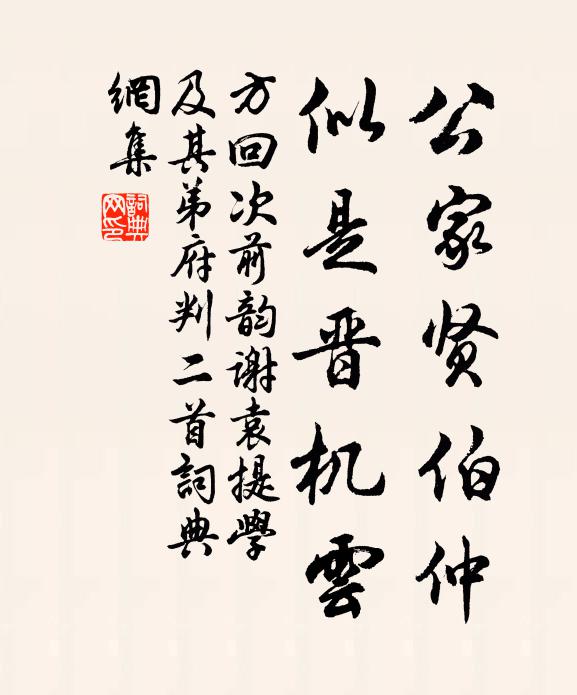 公家贤伯仲
似是晋机雲
方回次前韵谢袁提學
及其弟府判二首詞典
網集
詞典
网印